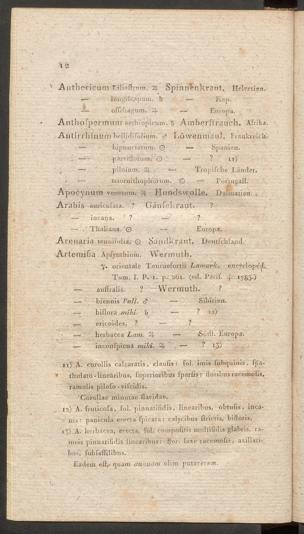 12
Anthericum Liliastrum. ♃ Spinnenkraut. Helvetien.
— longiscapum. ♄ — Kap.
— ossifragum. ♃ — Europa.
Anthospermum aethiopicum. ♄ Amberstrauch. Afrika.
Antirrhinum bellidifolium. ♂ Löwenmaul. Frankreich.
— bipunctatum. ☉ — Spanien.
— parviflorum. ☉ — ? 11)
— pilosum. ♃ — Tropische Länder.
— triornithophorum. ☉ — Portugall.
Apocynum venetum. ♃ Hundswolle. Dalmatien.
Arabis auriculata. ? Gänsekraut. ?
— incana. ? — ?
— Thaliana. ☉ — Europa.
Arenaria tenuifolia. ☉ Sandkraut. Deutschland.
Artemisia Absynthium. Wermuth.
γ. orientale Tournefortii Lamark. encyclopéd.
Tom. I. P. 1. p. 261. (ed. Paris. 4. 1783.)
— australis. ? — Wermuth. ?
— biennis Pall. ♂ — Sibirien.
— biflora mihi. ♄ — ? 12)
— ericoides. ? — ?
— herbacea Lam. ♃ — Südl. Europa.
— inconspicua mihi. ♃ — ? 13)
11) A. corollis calcaratis, clausis: fol. imis subquinis, spa-
thulato-linearibus, superioribus sparsis: floribus racemosis,
ramulis piloso-viscidis.
Corollae minutae flavidae.
12) A. fruticosa, fol. pinnatifidis, linearibus, obtusis, inca-
nis: panicula erecta spicata: calycibus strictis, bifloris.
13) A. herbacea, erecta, fol. compositis multifidis glabris, ra-
meis pinnatifidis linearibus: flor. laxe racemosis, axillari-
bus, subsessilibus.
Eadem est, quam annuam olim putaveram.